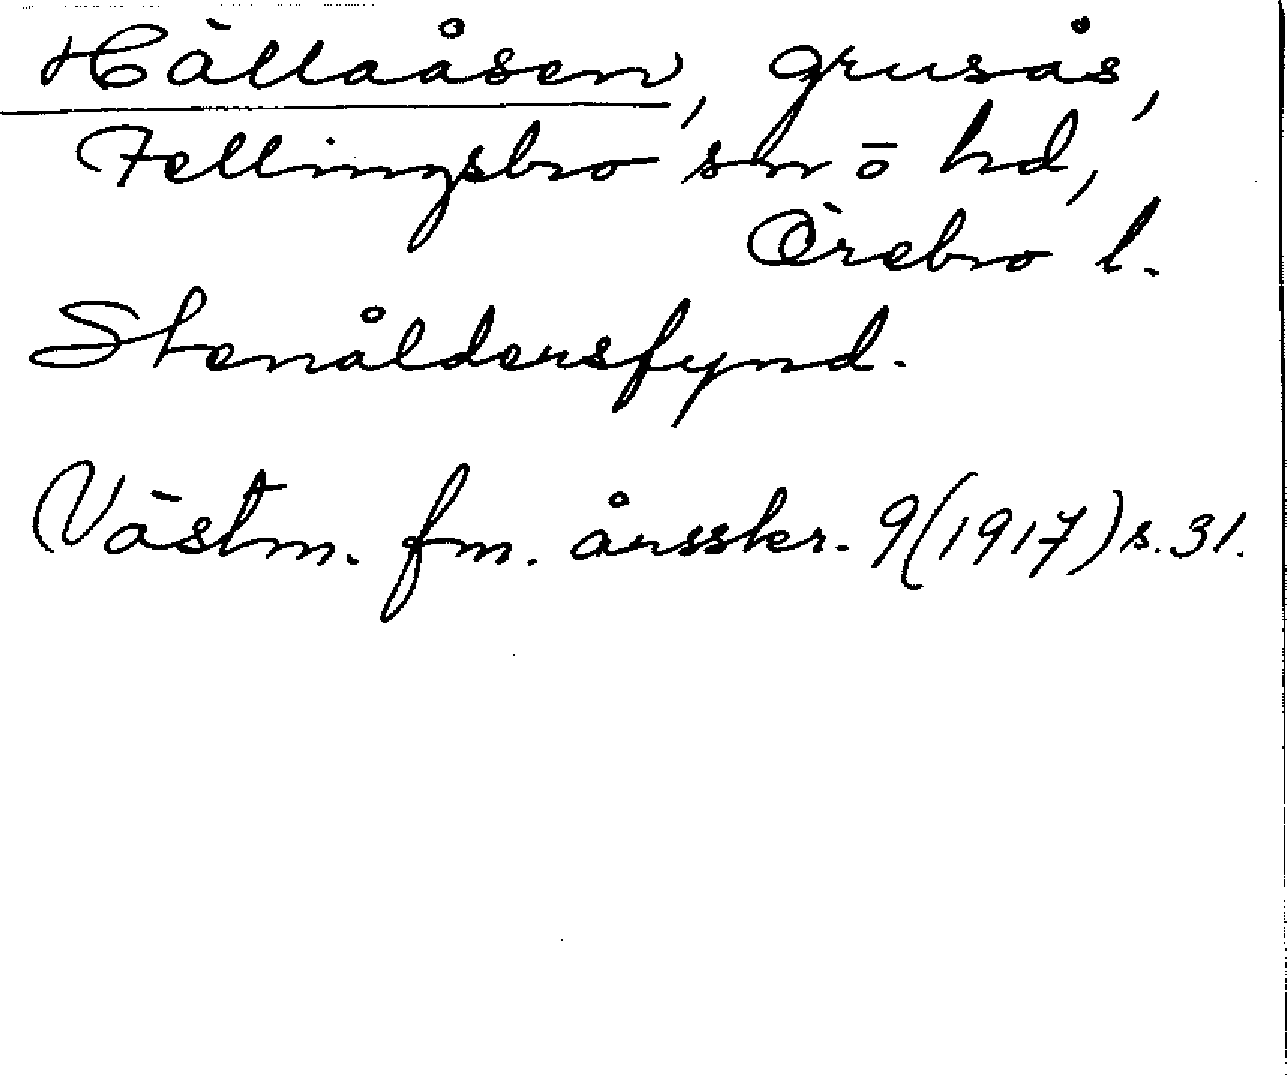 Hällaåsen, grusås,
Fellingsbro sn ō hd,
Örebro l.
Stenåldersfynd.
Västm. fm. årsskr. 9(1917) s. 31.